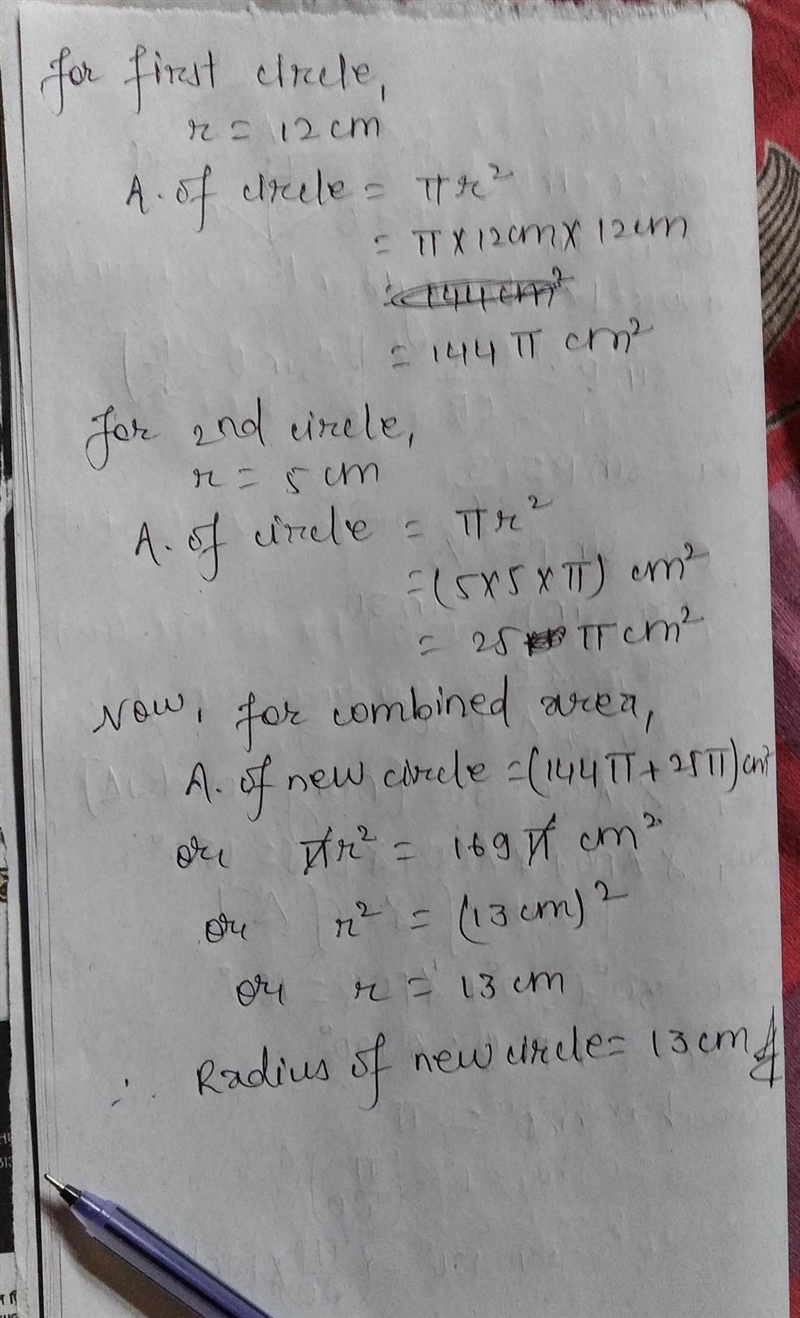 For first circle,
r = 12 cm
A. of circle = πr²
= π × 12cm × 12cm
= 144 cm²
= 144 π cm²
for 2nd circle,
r = 5 cm
A. of circle = πr²
= (5×5×π) cm²
= 25 π cm²
Now, for combined area,
A. of new circle = (144π + 25π) cm²
or πr² = 169π cm²
or r² = (13 cm)²
or r = 13 cm
∴ Radius of new circle = 13 cm